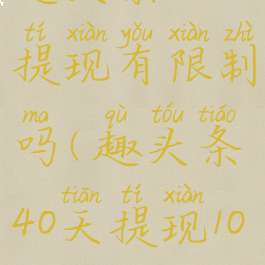 tí xiàn yǒu xiàn zhì
提现有限制
ma qù tóu tiáo
吗(趣头条
tiān tí xiàn
40天提现10